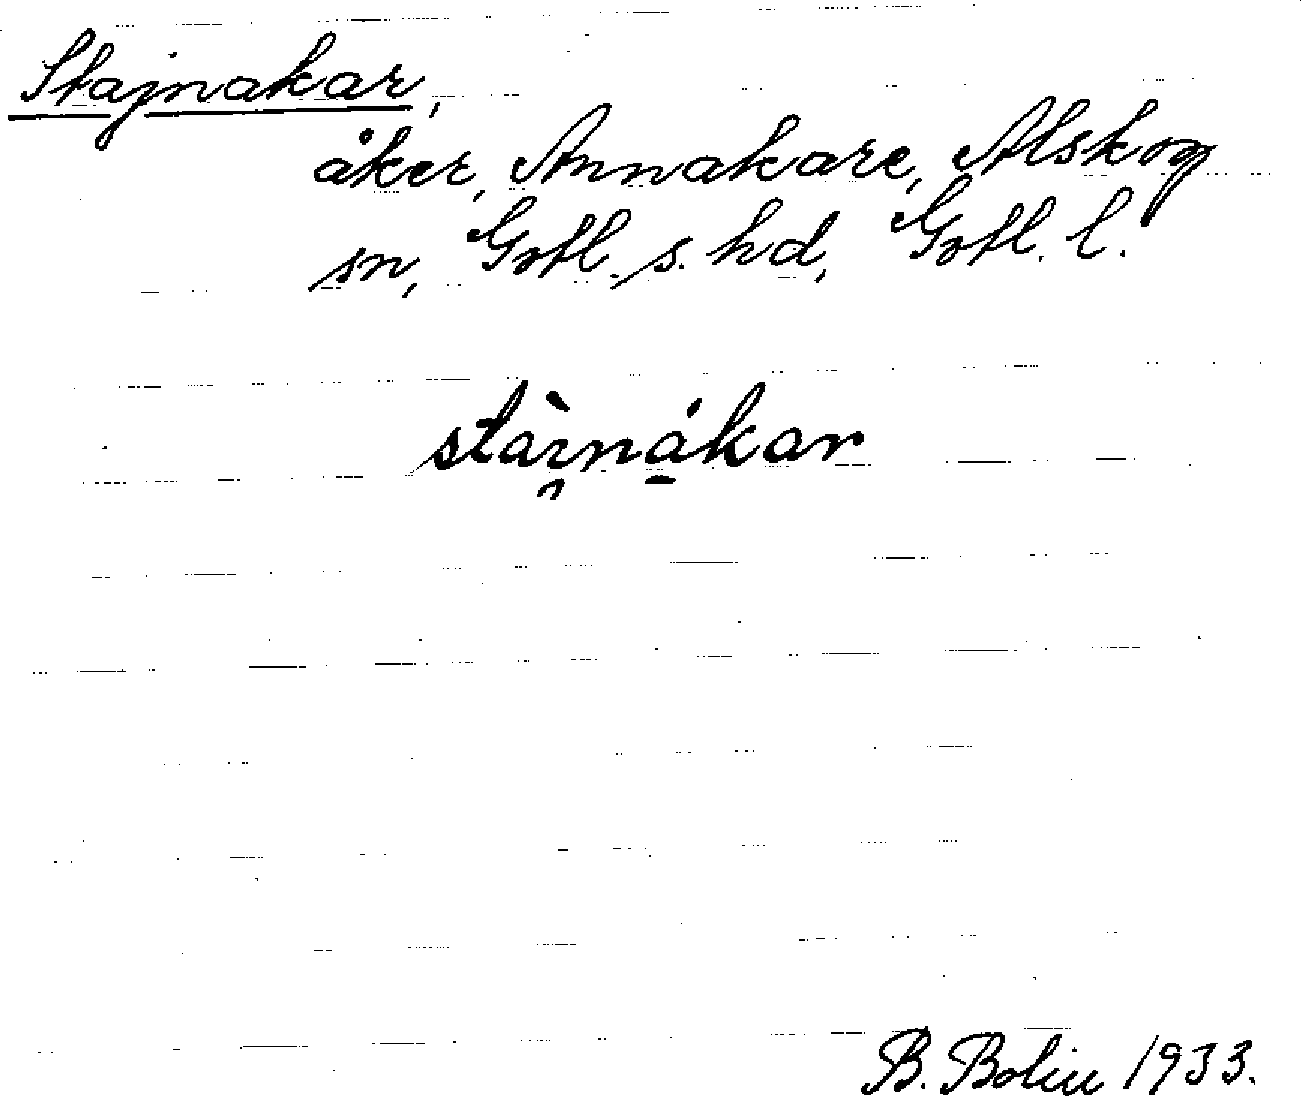 Stajnakar,
åker, Annakare, Alskog
sn, Gotl. s. hd, Gotl. l.
stàɪ̯nȧ̱kar
B. Bolin 1933.